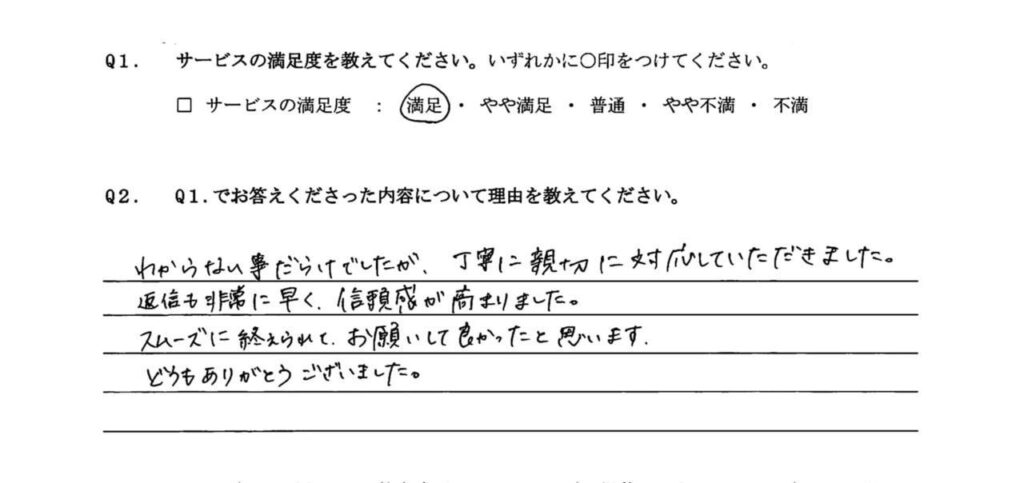 Q1. サービスの満足度を教えてください。いずれかに〇印をつけてください。
□ サービスの満足度 : 満足・ やや満足 ・ 普通 ・ やや不満 ・ 不満
Q2. Q1.でお答えくださった内容について理由を教えてください。
わからない事だらけでしたが、丁寧に親切に対応していただきました。
返信も非常に早く、信頼感が高まりました。
スムーズに終えられて、お願いして良かったと思います.
どうもありがとうございました。